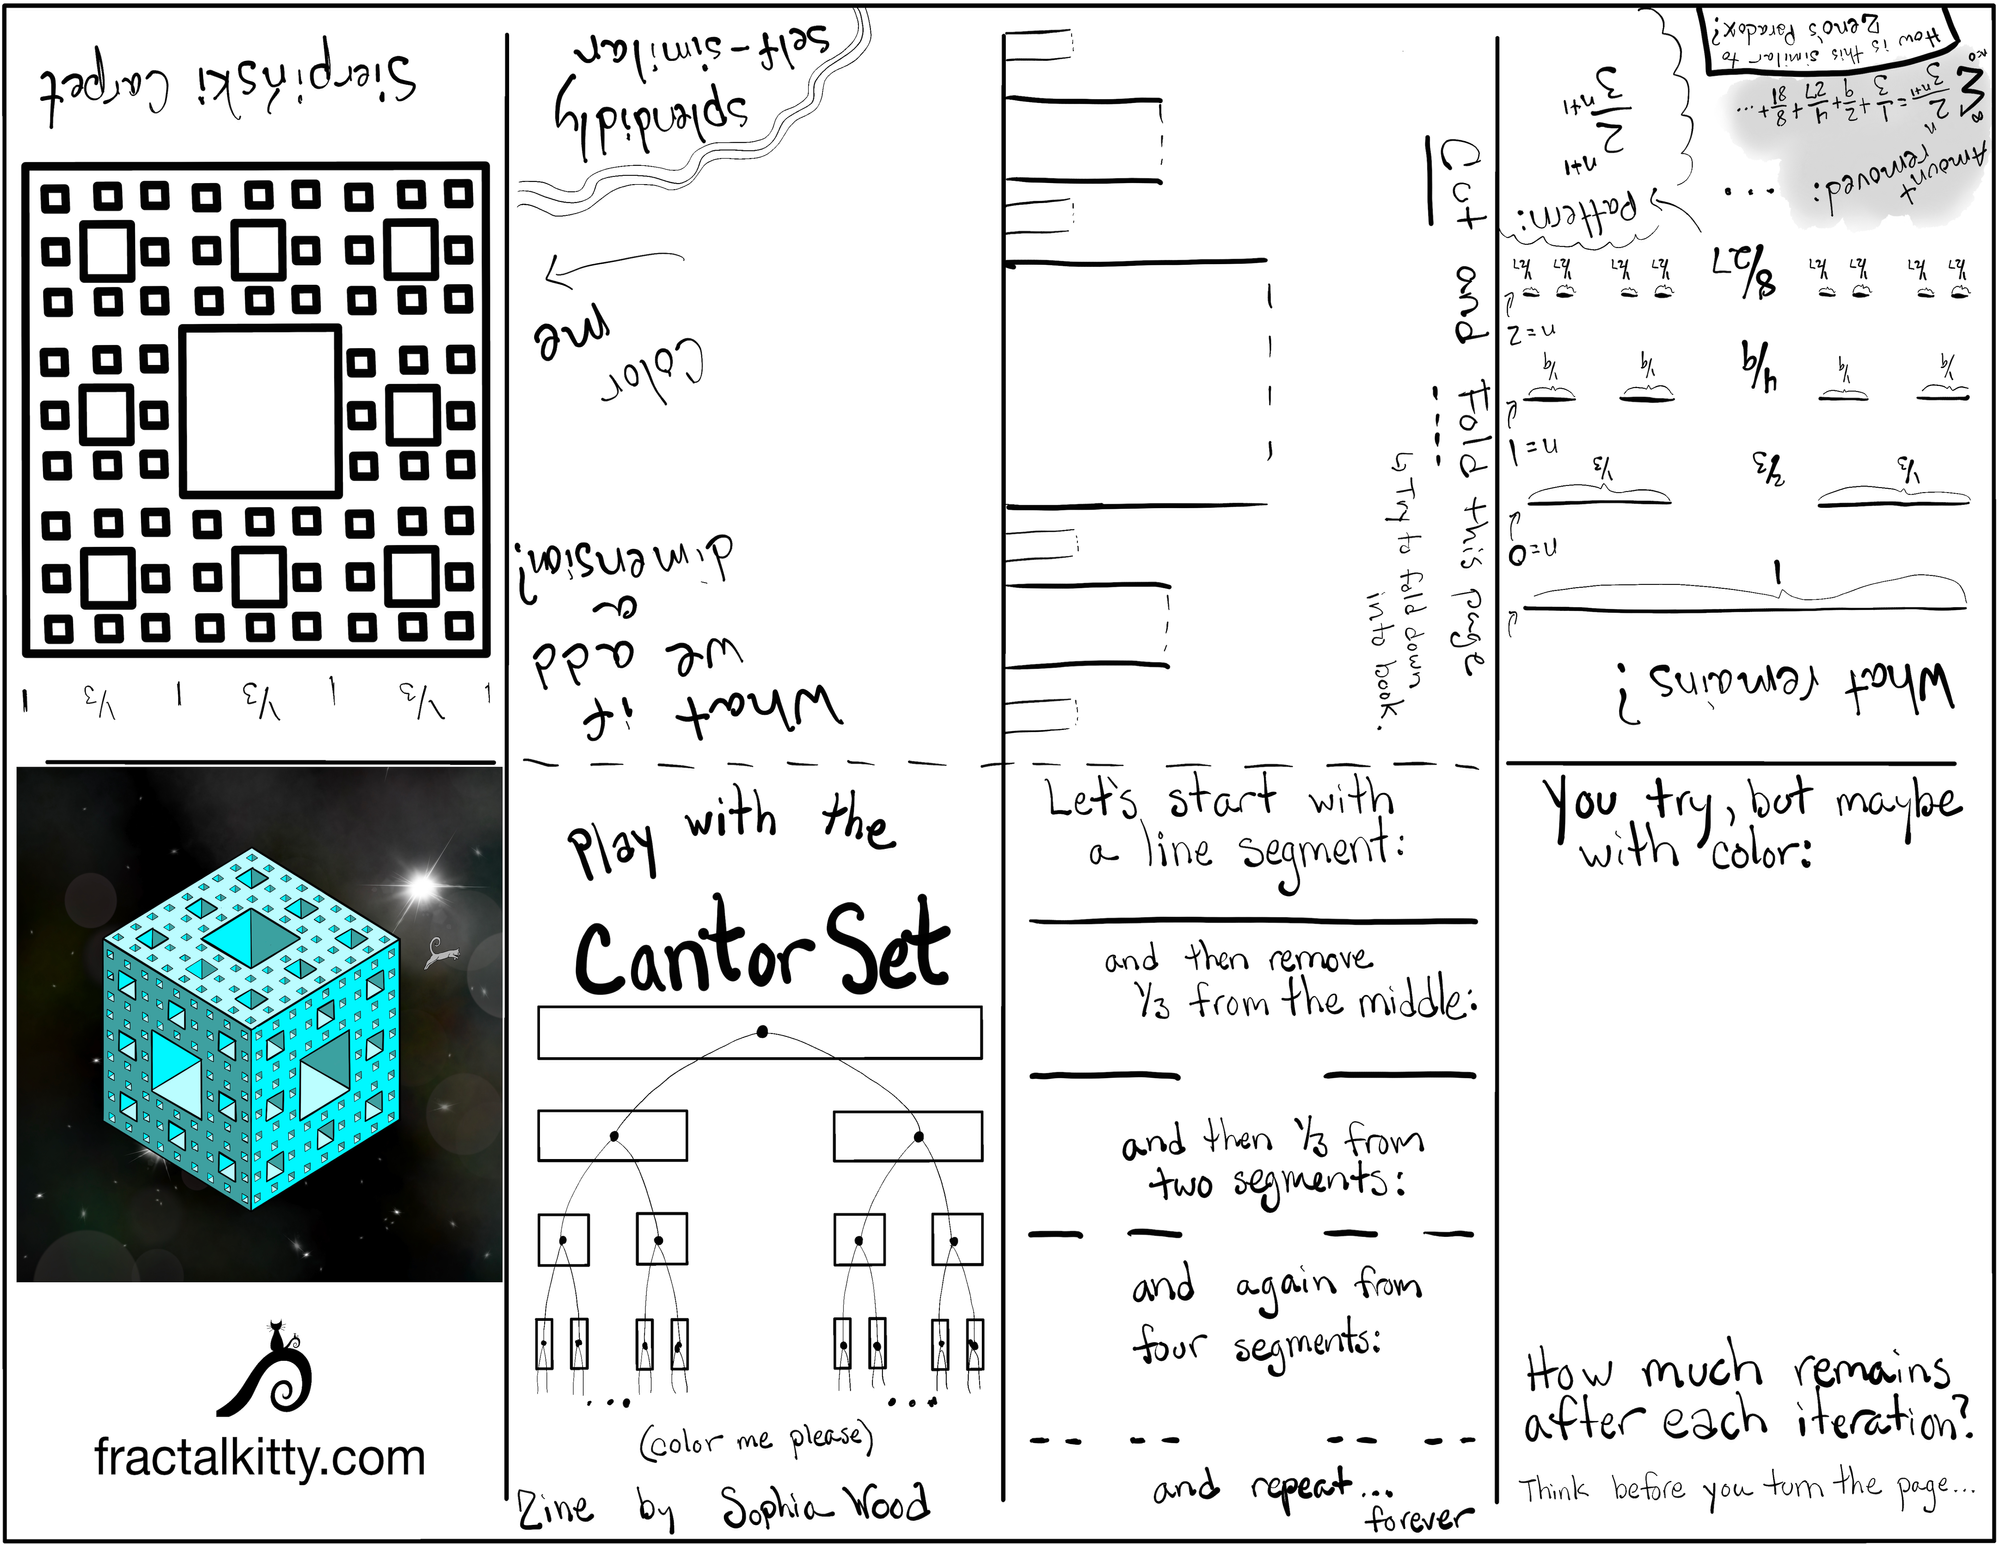 Play with the
Cantor Set
...
...
(color me please)
Zine by Sophia Wood
Let's start with
a line segment:
and then remove
1/3 from the middle:
and then 1/3 from
two segments:
and again from
four segments:
and repeat...
forever
You try, but maybe
with color:
How much remains
after each iteration?
Think before you turn the page...
What remains?
1
n=0
1/3 2/3 1/3
n=1
1/9 1/9 4/9 1/9 1/9
n=2
1/27 1/27 1/27 1/27 8/27 1/27 1/27 1/27 1/27
...
Pattern:
2^n+1
3^n+1
Amount
removed:
∞ Σ n=0 2^n/3^n+1 = 1/3 + 2/9 + 4/27 + 8/81 + ...
How is this similar to
Zeno's Paradox?
Cut and Fold this page
↳ Try to fold down
into book.
What if
we add
a
dimension?
Color
me
splendidly
self-similar
1 1/3 1 1/3 1 1/3 1
Sierpiński Carpet
fractalkitty.com